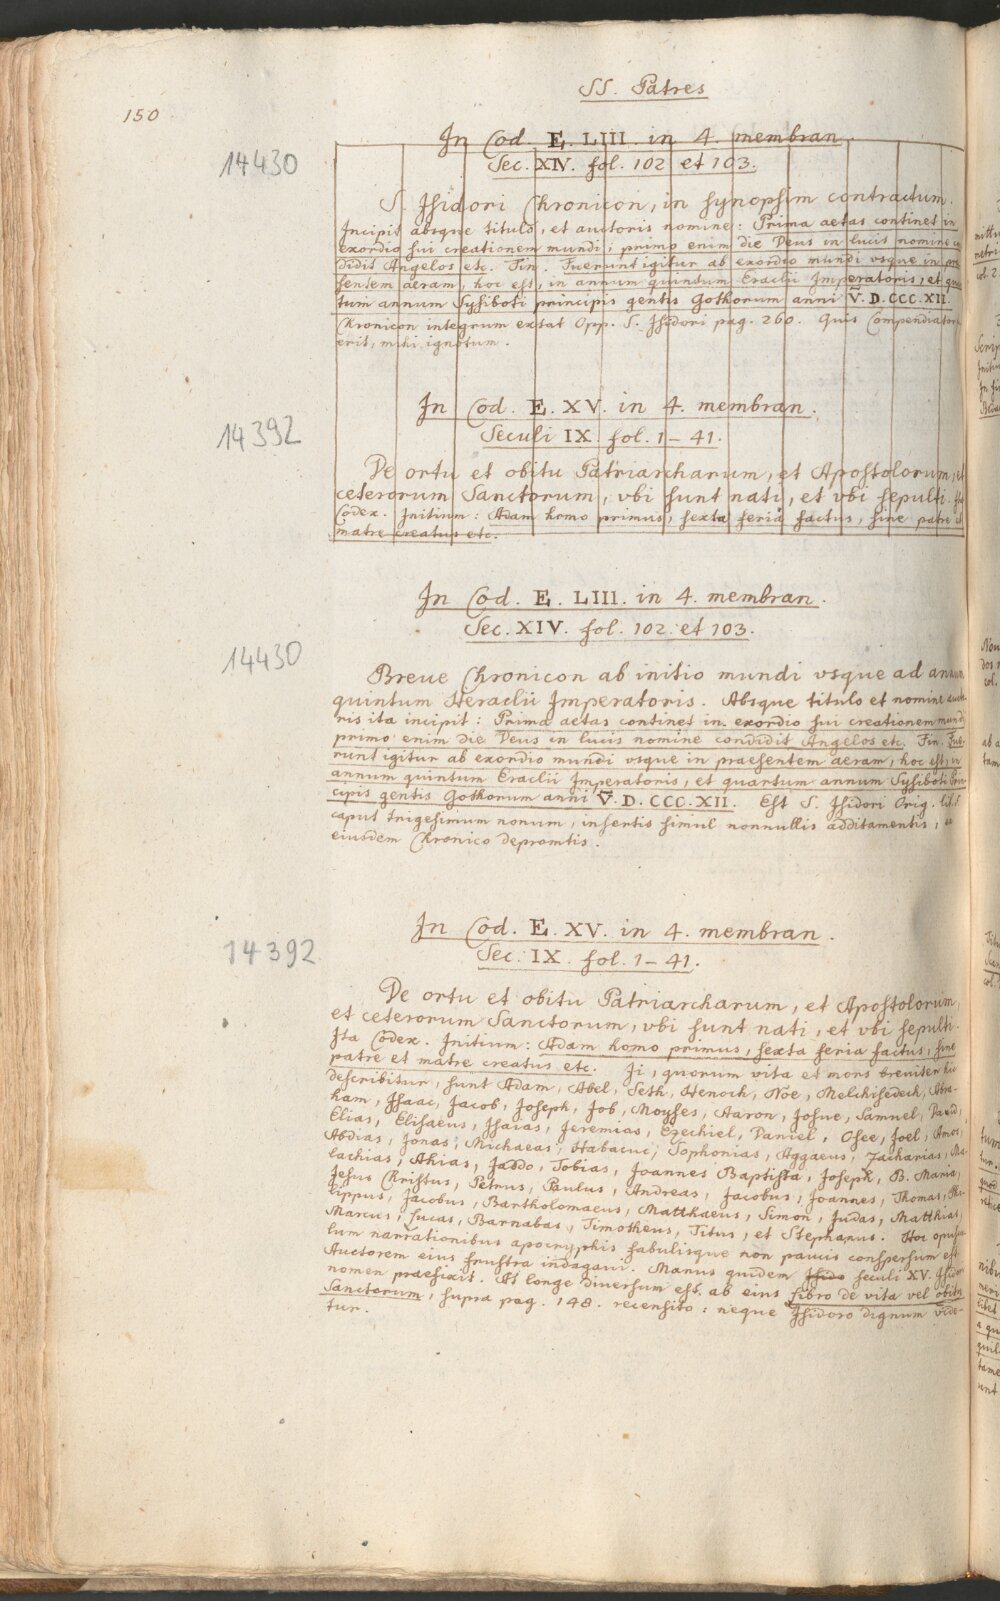 SS. Patres
150
In Cod. E. LIII. in 4. membran.
14430
Sec. XIV. fol. 102 et 103.
S. Isidori Chronicon, in synopsim contractum.
Incipit absque titulo, et auctoris nomine: Prima aetas continet in
exordio sui creationem mundi; primo enim die Deus in lucis nomine con-
didit Angelos etc. Fin. Fuerunt igitur ab exordio mundi vsque in prae-
sentem aeram, hoc est, in annum quintum Eraclii Imperatoris, et quar-
tum annum Sysiboti principis gentis Gothorum anni V̅. D.CCC.XII.
Chronicon integrum exstat Opp. S. Isidori pag. 260. Quis Compendiator
erit, mihi ignotum.
In Cod. E. XV. in 4. membran.
14392
Seculi IX. fol. 1–41.
De ortu et obitu Patriarcharum, et Apostolorum, et
ceterorum Sanctorum, vbi sunt nati, et vbi sepulti. Ita
Codex. Initium: Adam homo primus, sexta feria factus, sine patre et
matre creatus etc.
In Cod. E. LIII. in 4. membran.
Sec. XIV. fol. 102. et 103.
14430
Breue Chronicon ab initio mundi vsque ad annum
quintum Heraclii Imperatoris. Absque titulo et nomine aucto-
ris ita incipit: Prima aetas continet in exordio sui creationem mundi
primo enim die Deus in lucis nomine condidit Angelos etc. Fin. Fue-
runt igitur ab exordio mundi vsque in praesentem aeram, hoc est, in
annum quintum Eraclii Imperatoris, et quartum annum Sysiboti Prin-
cipis gentis Gothorum anni V̅. D. CCC. XII. Est S. Isidori Orig. lib. 5.
caput trigesimum nonum, insertis simul nonnullis additamentis,
eiusdem Chronico depromtis.
In Cod. E. XV. in 4. membran.
14392
Sec. IX. fol. 1–41.
De ortu et obitu Patriarcharum, et Apostolorum,
et ceterorum Sanctorum, vbi sunt nati, et vbi sepulti.
Ita Codex. Initium: Adam homo primus, sexta feria factus, sine
patre et matre creatus etc. Ii, quorum vita et mors breviter hic
describitur, sunt Adam, Abel, Seth, Henoch, Noe, Melchisedech, Abra-
ham, Isaac, Jacob, Joseph, Job, Moyses, Aaron, Josue, Samuel, David,
Elias, Elisaeus, Isaias, Jeremias, Ezechiel, Daniel, Osee, Joel, Amos,
Abdias, Jonas, Michaeas, Habacuc, Sophonias, Aggaeus, Zacharias, Ma-
lachias, Ahias, Jaddo, Tobias, Joannes Baptista, Joseph, B. Maria,
Jesus Christus, Petrus, Paulus, Andreas, Jacobus, Joannes, Thomas, Phi-
lippus, Jacobus, Bartholomaeus, Matthaeus, Simon, Judas, Matthias,
Marcus, Lucas, Barnabas, Timotheus, Titus, et Stephanus. Hoc opuscu-
lum narrationibus apocryphis fabulisque non paucis conspersum est
Auctorem eius frustra indagavi. Manus quidem Isido seculi XV. Isidori
nomen praefixit. At longe diversum est ab eius Libro de vita vel obitu
Sanctorum, supra pag. 148. recensito: neque Isidoro dignum vide-
tur.